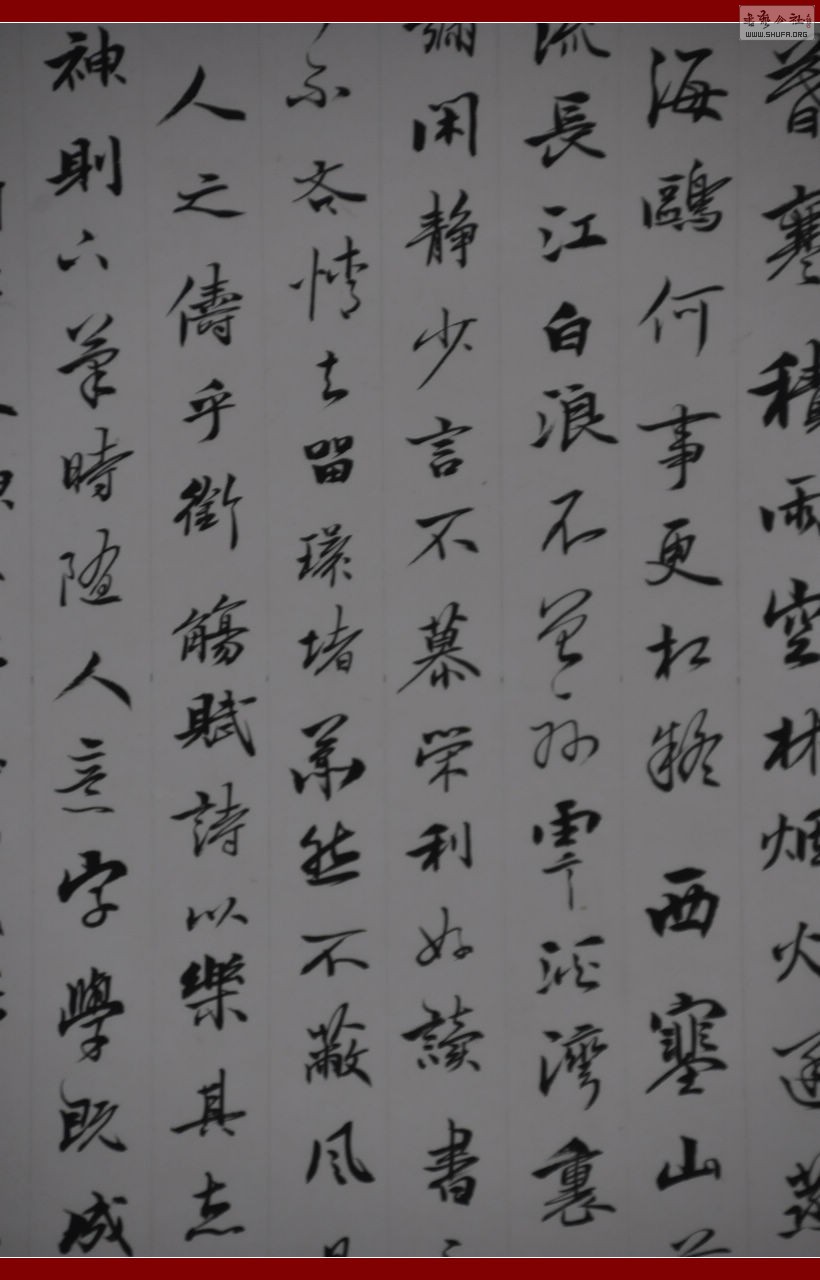 積雨空林煙火遲蒸
海鷗何事更相疑 西塞山前
流長江白浪不曾憂霅溪灣裏
閑靜少言不慕榮利好讀書
不吝情去留環堵蕭然不蔽風日
人之儔乎銜觴賦詩以樂其志
神則下筆時隨人意字學既成
WWW.SHUFA.ORG